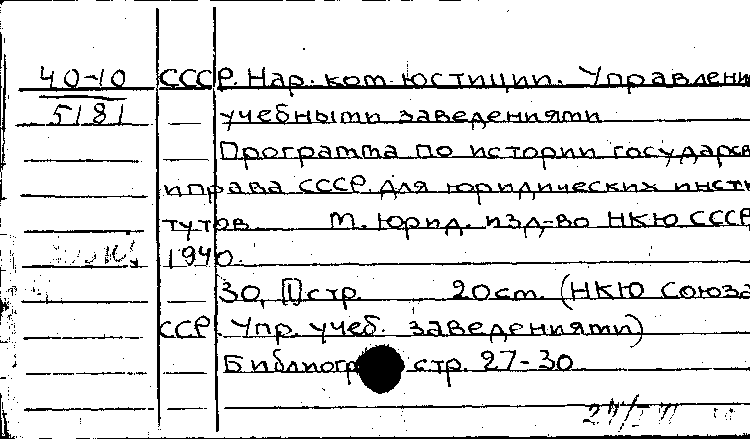 40-10 СССР. Нар. ком. юстиции. Управлени
5181 учебными заведениями
Программа по истории государс
и права СССР. для юридических инсти
тутов. М. Юрид. изд-во НКЮ СССР
1940.
30, [1] стр. 20 см. (НКЮ Союза
ССР. Упр. учеб. заведениями)
Библиогр стр. 27-30